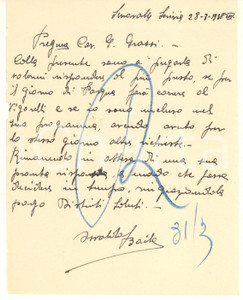 Seravalle Scrivia 28-3-1935 XIII
Preg.mo Cav. G. Grassi. —
Colla presente sono a pregarla di
volermi rispondere al più presto, se per
il giorno di Pasqua farà correre al
Vigorelli e se io sono incluso nel
suo programma, avendo avuto per
lo stesso giorno altre richieste.
Rimanendo in attesa di una sua
pronta risposta, in modo che possa
decidere in tempo, ringraziandola
porgo Distinti Saluti. —
31/3